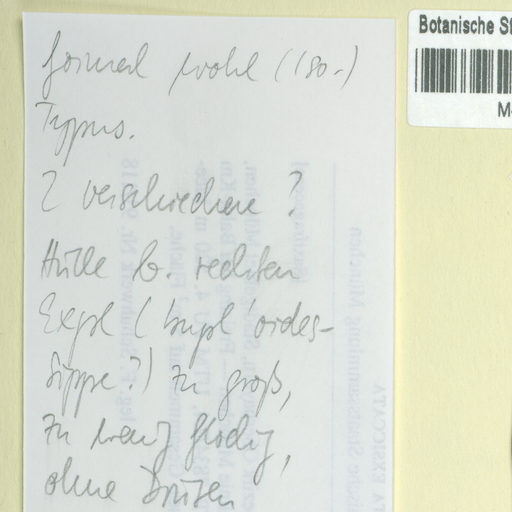 formal wohl (Iso-)
Typus.
2 verschiedene ?
Hülle b. rechten
Expl (
sippe?) zu groß,
zu wenig flockig,
ohne Drüsen
Botanische St
M-